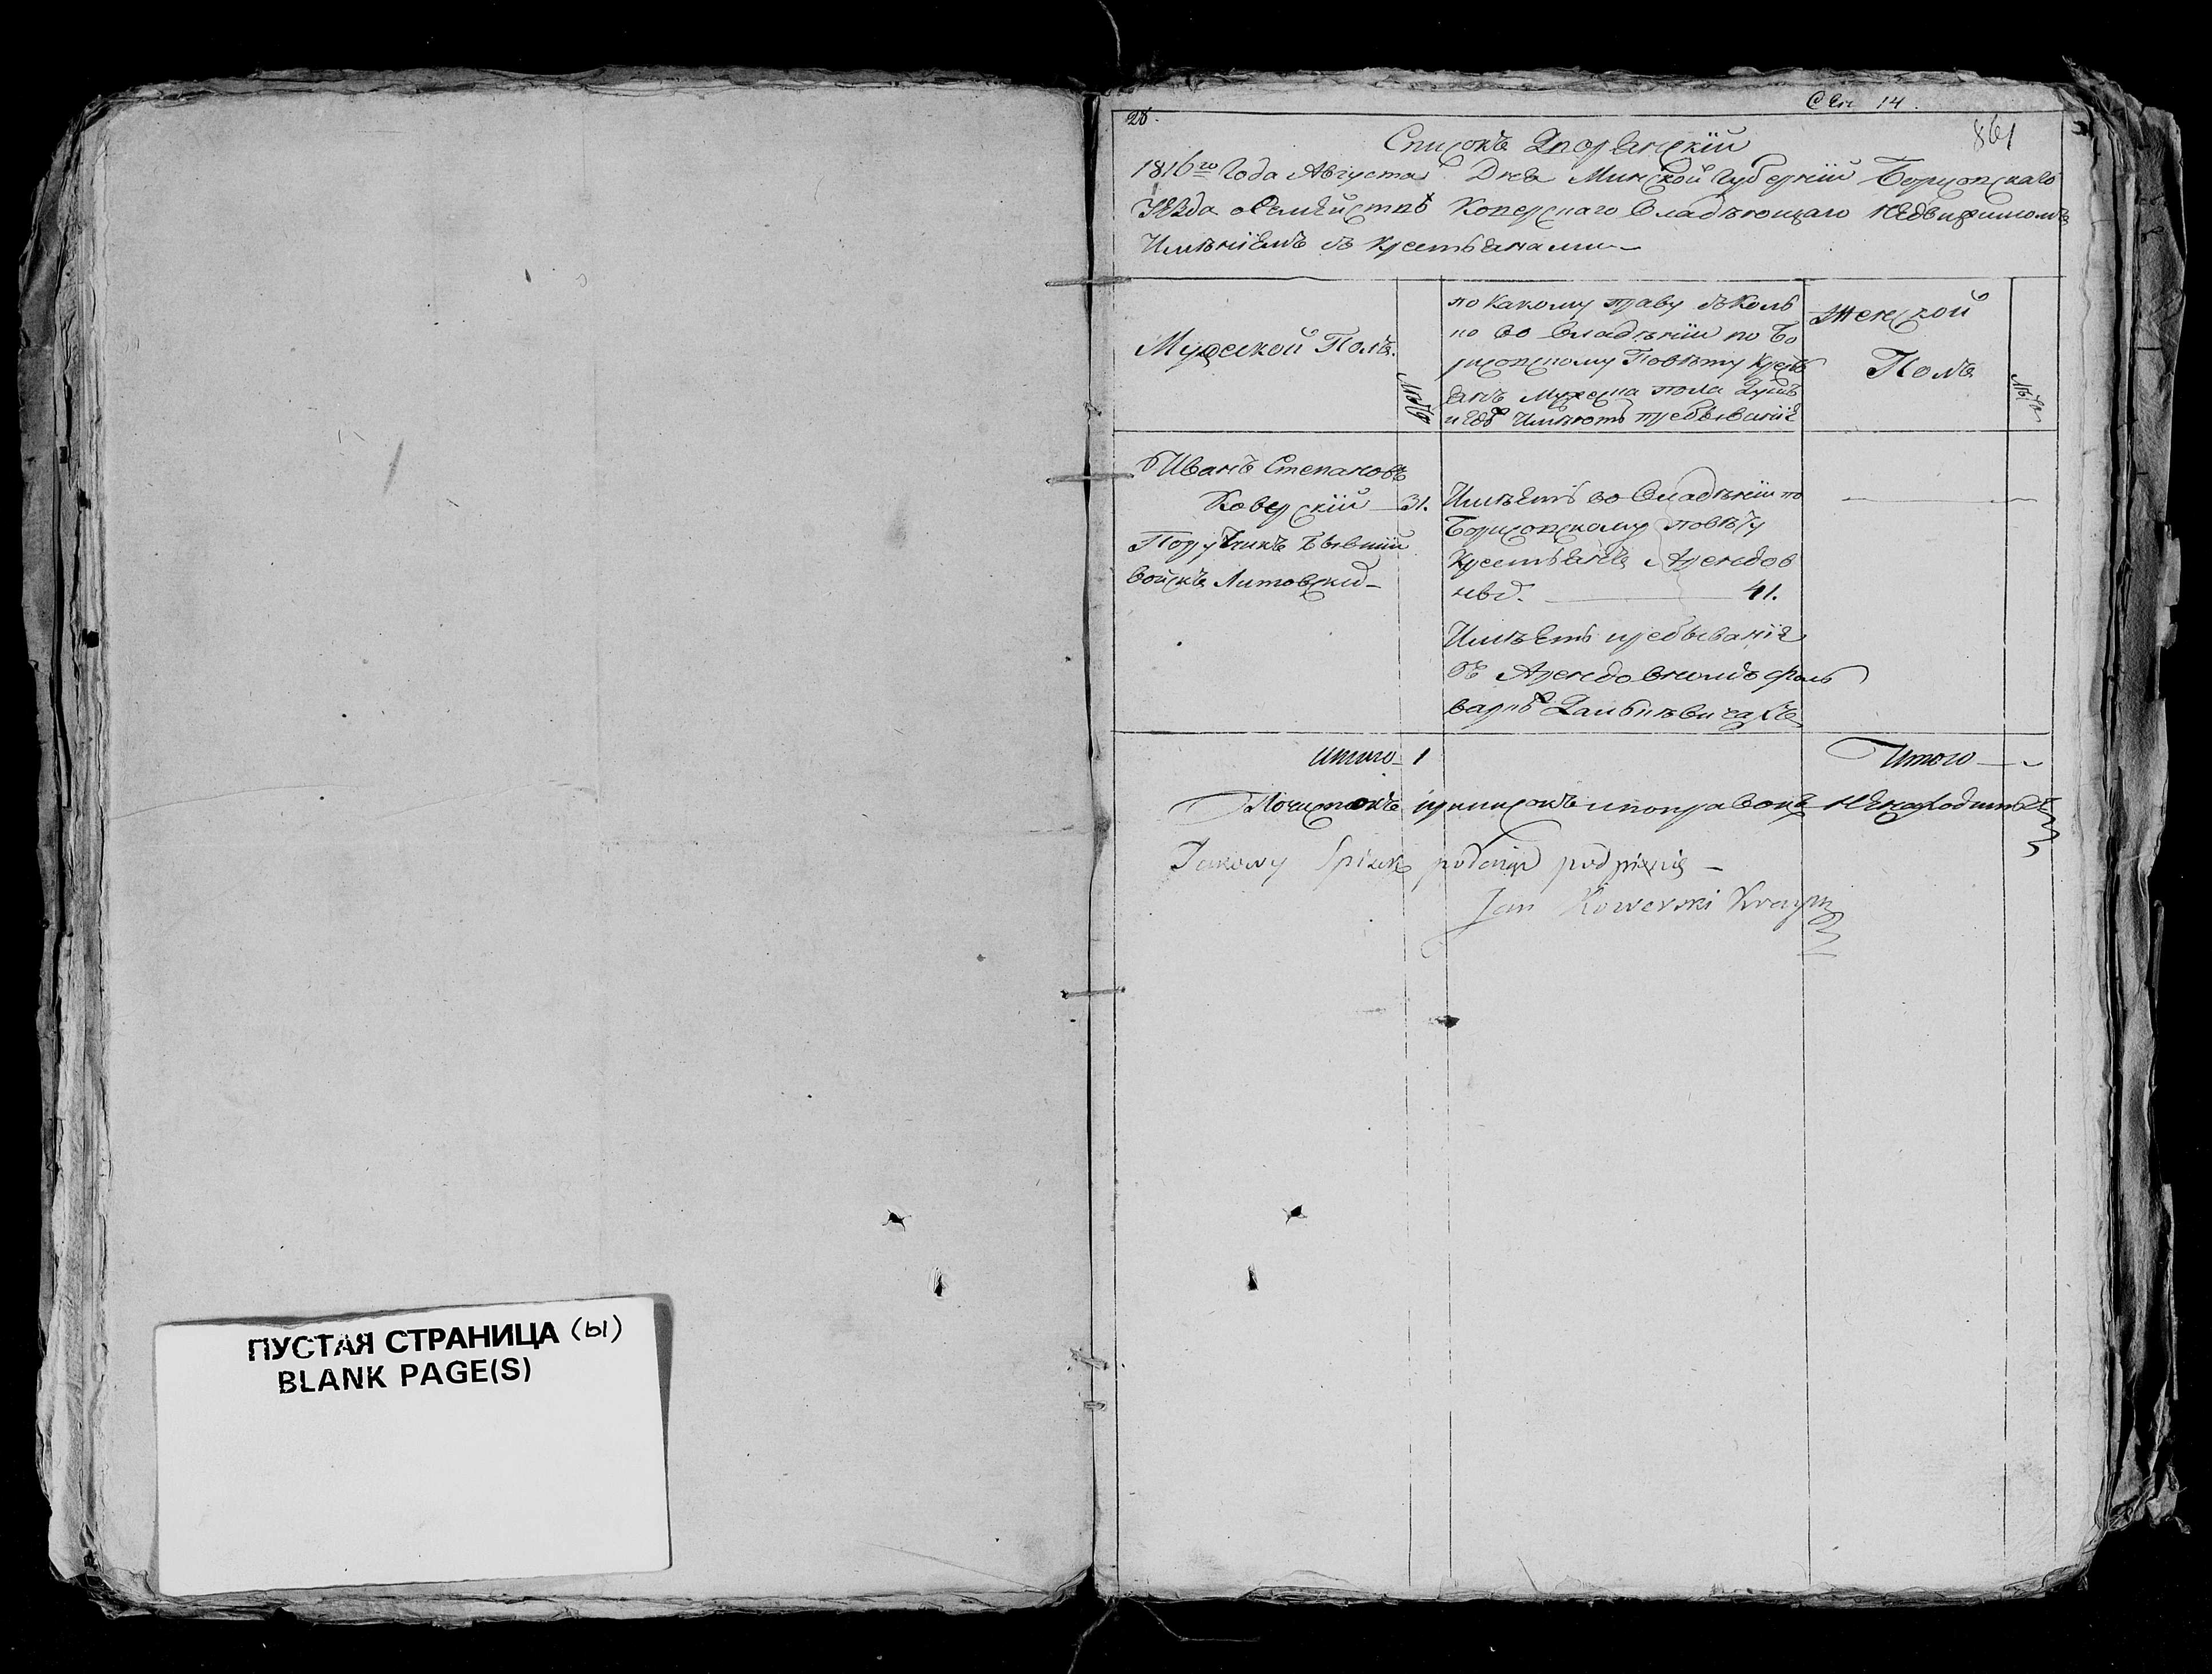 ПУСТАЯ СТРАНИЦА (ы)
BLANK PAGE(S)
14.
28.
861
Списокъ Дворянскій
1816го Года Августа Дня Минской Губерніи Борисовскаго
Уѣзда о Семействѣ Коверскаго Владѣющаго Недвижимомъ
Имѣніемъ съ Крестьянами —
Мужеской Полъ.
Лѣта
по Какому праву сколь
ко во Владѣніи по Бо
рисовскому Повѣту Кресть
янъ мужеска пола Душъ
и гдѣ Имѣютъ пребываніе
Женской
Полъ
Лѣта
Иванъ Степановъ
Коверскій — 31.
Поручикъ бывшій
войскъ Литовских —
Имѣетъ во Владѣніи по
Борисовскому повѣту
Крестьянъ Арендов
ных. — 41.
Имѣетъ пребываніе
въ Арендовномъ фоль
варкѣ
Итого — 1
Итого —
Почистокъ приписокъ и поправокъ ненаходится
Takowy Spisek podając podpisuję —
Jan Kowerski